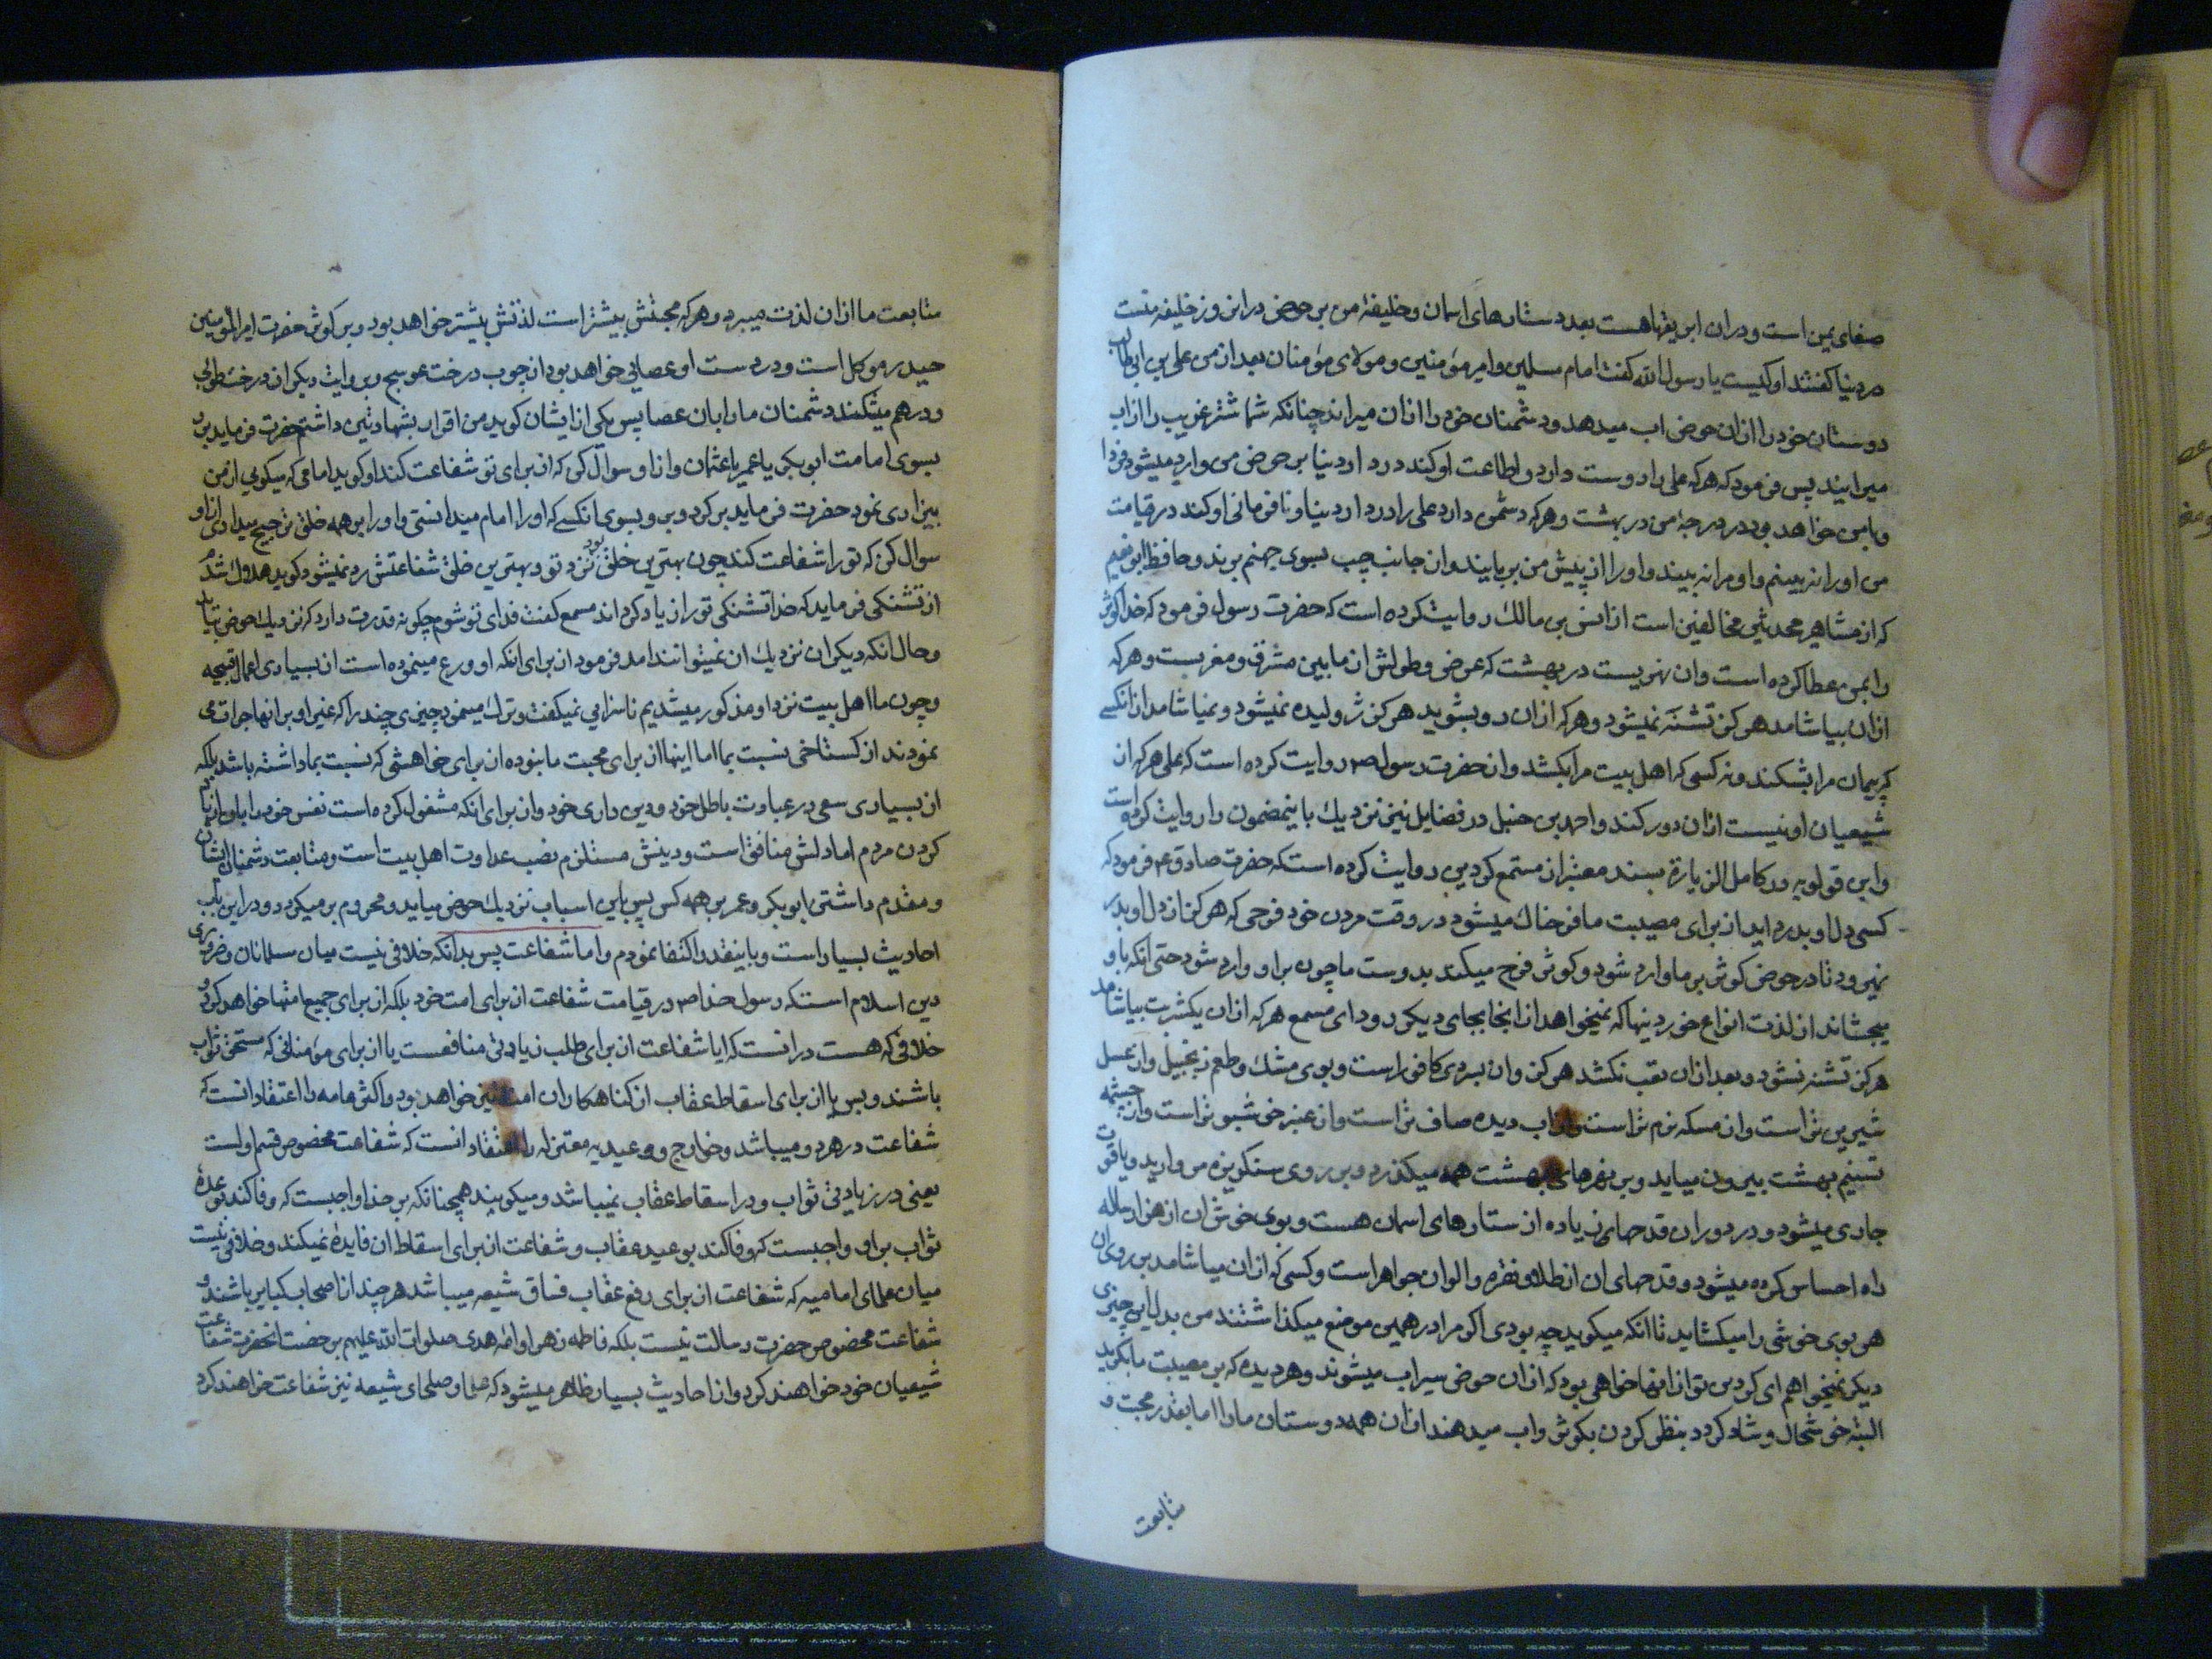 صفای یمن است و دران ابریقها هست بعدد ستارهای اسمان و خلیفهٔ من بر حوض دران روز خلیفه منست
در دنیا کفتند او کیست یا رسول الله کفت امام مسلمین و امیر مؤمنین و مولای مؤمنان بعد از من علی بن ابیطالب
دوستان خود را ازان حوض اب میدهد و دشمنان خود را ازان میراند چنانکه شما شتر غریب را از اب
میرانید پس فرمود که هر که علی را دوست دارد و اطاعت او کند در دار دنیا بر حوض من وارد میشود فردا
و با من خواهد بود در درجهٔ من در بهشت و هر که دشمن دارد علی را در دار دنیا و نافرمانی او کند در قیامت
من او را نه بینم و او مرا نه بیند و او را از پیش من بربایند و از جانب چپ بسوی جهنم برند و حافظ ابو نعیم
که از مشاهیر محدثین مخالفین است از انس بن مالک روایت کرده است که حضرت رسول فرمود که خدا کوثر
را بمن عطا کرده است و ان نهریست در بهشت که عرض و طولش ان مابین مشرق و مغربست و هر که
ازان بیاشامد هرکز تشنه نمیشود و هر که ازان رو بشوید هرکز ژولیده نمیشود و نمیاشامد ازان کسی
که پیمان مرا بشکند و نه کسی که اهل بیت مرا بکشد و از حضرت رسول ص روایت کرده است که علی هر که از
شیعیان او نیست ازان دور کند و احمد بن حنبل در فضایل نیز نزدیک باینمضمون را روایت کرده است
و ابن قولویه در کامل الزیارة بسند معتبر از مسمع کردین روایت کرده است که حضرت صادق ع فرمود که
کسی دل او بدرد اید از برای مصیبت ما فرحناک میشود در وقت مردن خود فرحی که هرکز از دل او بدر
نمیرود تا در حوض کوثر بر ما وارد شود و کوثر فرح میکند بدوست ما چون بر او وارد شود حتی انکه باو
میچشاند از لذت انواع خوردینها که نمیخواهد از انجا بجای دیکر رود ای مسمع هر که ازان یکشربت بیاشامد
هرکز تشنه نشود و بعد ازان تعب نکشد هرکز و ان بسردی کافور است و بوی مشک و طعم زنجبیل و از عسل
شیرین تر است و از مسکه نرم تر است و از اب دیده صاف تر است و از عنبر خوشبو تر است و از چشمه
تسنیم بهشت بیرون میاید و بر نهرهای بهشت همه میکذرد و بر روی سنکریزه مروارید و یاقوت
جاری میشود و در دوران قدحهای زیاده از ستارهای اسمان هست و بوی خوش ان از هزار ساله
راه احساس کرده میشود و قدحهای ان از طلا و نقره و الوان جواهر است و کسی که ازان میاشامد بر روی ان
هر بوی خوشی را میکشاید تا انکه میکوید چه بودی اکر مرا در همین موضع میکذاشتند من بدل این چیزی
دیکر نمیخواهم ای کردین تو از انها خواهی بود که ازان حوض سیراب میشوند و هر دیده که بر مصیبت ما بکرید
البته خوشحال و شاد کردد بنظر کردن بکوثر و اب میدهند ازان همه دوستان ما را اما بقدر محبت و
متابعت
متابعت ما ازان لذت میبرد و هر که محبتش بیشتر است لذتش بیشتر خواهد بود و بر کوثر حضرت امیرالمؤمنین
حیدر موکل است و در دست او عصایی خواهد بود از چوب درخت عوسج و بروایت دیکر از درخت طوبی
و درهم میشکند دشمنان ما را بان عصا پس یکی از ایشان کوید من اقرار بشهادتین داشتم حضرت فرماید برو
بسوی امامت ابوبکر یا عمر یا عثمان و از او سوال کن که از برای تو شفاعت کند او کوید امامی که میکویی از من
بیزاری نمود حضرت فرماید برکرد و برو بسوی انکسی که او را امام میدانستی و او را بر همه خلق ترجیح میدادی از او
سوال کن که تو را شفاعت کند چون بهترین خلق بود نزد تو و بهترین خلق شفاعتش رد نمیشود کوید هلاک شدم
از تشنکی فرماید که خدا تشنکی تو را زیاد کرداند مسمع کفت فدای تو شوم چکونه قدرت دارد که نزدیک حوض بیاید
و حال انکه دیکران نزدیک ان نمیتوانند امد فرمود از برای انکه او ورع مینموده است از بسیاری اعمال قبیحه
و چون ما اهل بیت نزد او مذکور میشدیم ناسزایی نمیکفت و ترک میسمود چیزی چند را که غیر او بر انها جرات می
نمودند از کستاخی نسبت بما اما اینها از برای محبت ما نبوده از برای خواهشی که نسبت بما داشته باشد بلکه
از بسیاری سعی در عبادت باطل خود و دین داری خود و از برای انکه مشغول کرده است نفس خود را باو از یاد
کردن مردم اما دلش منافق است و دینش مستلزم نصب عداوت اهل بیت است و متابعت دشمنان ایشان
و مقدم داشتن ابوبکر و عمر بر همه کس پس باین اسباب نزدیک حوض میاید و محروم برمیکردد و در این باب
احادیث بسیار است و باینقدر اکتفا نمودم و اما شفاعت پس بدانکه خلافی نیست میان مسلمانان و ضروری
دین اسلام است که رسول خدا ص در قیامت شفاعت از برای امت خود بلکه از برای جمیع امتها خواهد کرد و
خلافی که هست در انست که ایا شفاعت از برای طلب زیادتی منافعست یا از برای مؤمنانی که مستحق ثواب
باشند و بس یا از برای اسقاط عقاب از کناهکاران امت نیز خواهد بود و اکثر عامه را اعتقاد انست که
شفاعت در هر دو میباشد و خوارج و وعیدیه معتزله را اعتقاد انست که شفاعت مخصوص قسم اولست
یعنی در زیادتی ثواب و در اسقاط عقاب نمیباشد و میکویند همچنانکه بر خدا واجبست که وفا کند بوعدهٔ
ثواب بر او واجبست که وفا کند بوعید عقاب و شفاعت از برای اسقاط ان فایده نمیکند و خلافی نیست
میان علمای امامیه که شفاعت از برای رفع عقاب فساق شیعه میباشد هر چند از اصحاب کبایر باشند و
شفاعت مخصوص حضرت رسالت نیست بلکه فاطمه زهرا و ائمه هدی صلوات الله علیهم برخصت انحضرت شفاعت
شیعیان خود خواهند کرد و از احادیث بسیار ظاهر میشود که علما و صلحای شیعه نیز شفاعت خواهند کرد